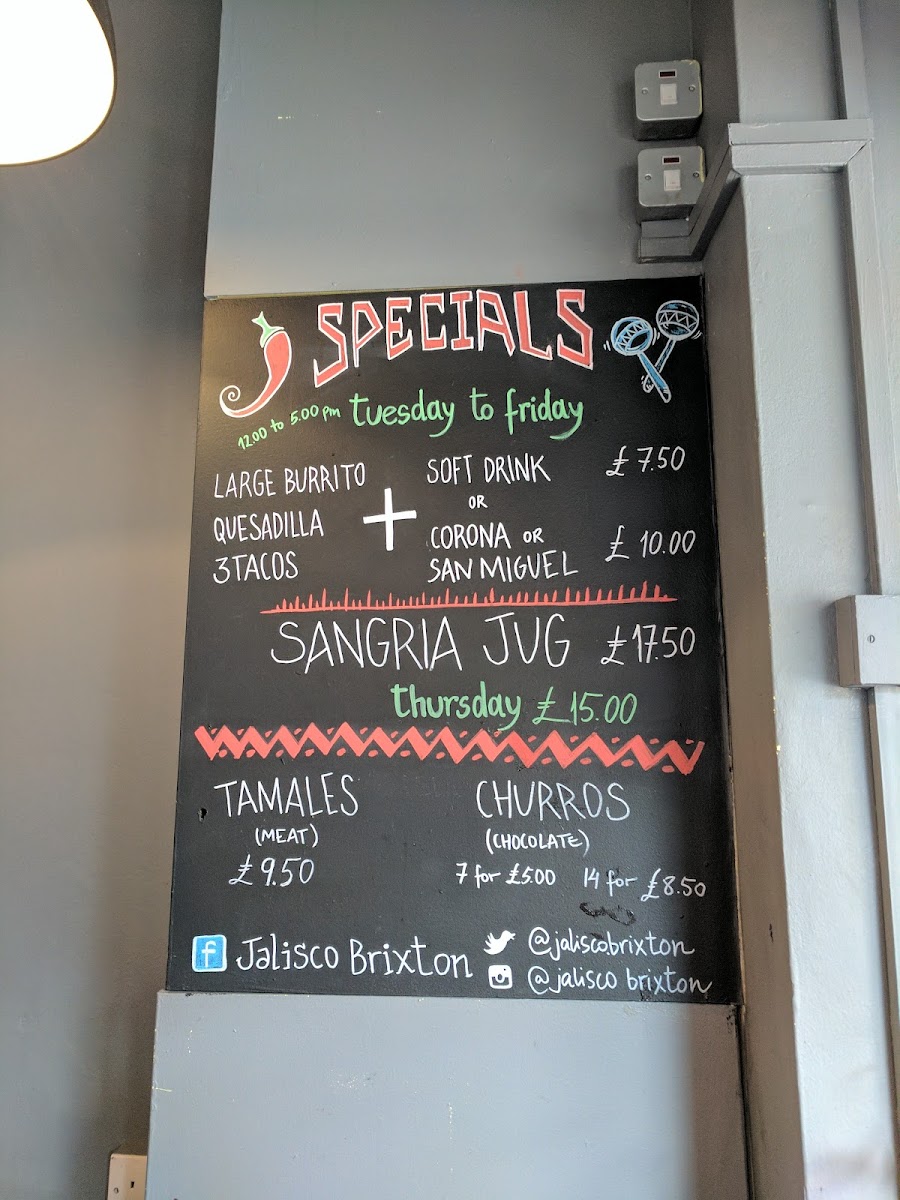 SPECIALS
12.00 to 5.00 pm tuesday to friday
LARGE BURRITO
QUESADILLA
3 TACOS
+
SOFT DRINK £7.50
OR
CORONA OR
SAN MIGUEL £10.00
SANGRIA JUG £17.50
thursday £15.00
TAMALES
(MEAT)
£9.50
CHURROS
(CHOCOLATE)
7 for £5.00 14 for £8.50
f Jalisco Brixton
@jaliscobrixton
@jalisco brixton